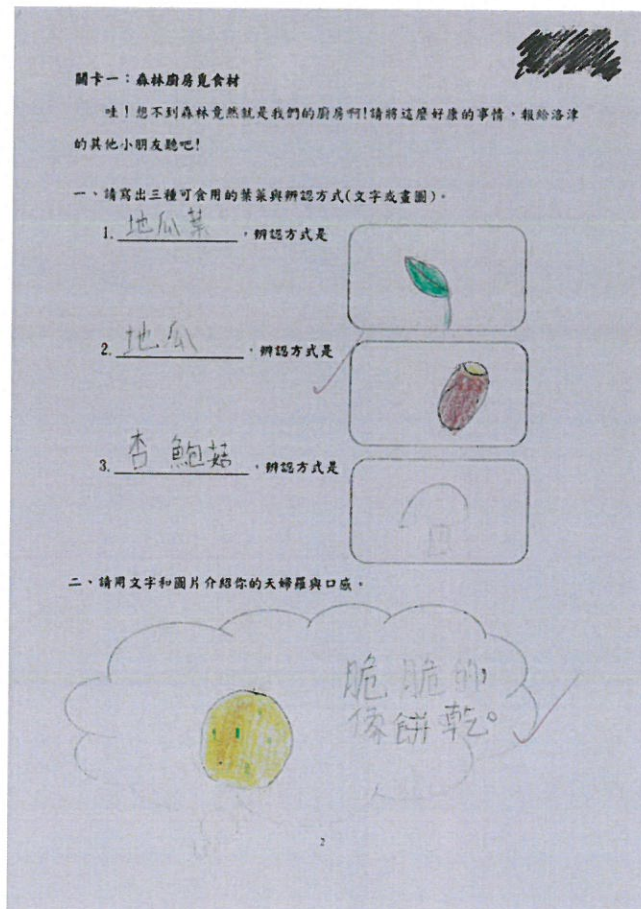 關卡一：森林廚房覓食材
哇！想不到森林竟然就是我們的廚房啊!請將這麼好康的事情，報給洛津
的其他小朋友聽吧!
一、請寫出三種可食用的葉菜與辨認方式(文字或畫圖)。
1. 地瓜葉，辨認方式是
2. 地瓜，辨認方式是
3. 杏鮑菇，辨認方式是
二、請用文字和圖片介紹你的天婦羅與口感。
脆脆的，
像餅乾。
2